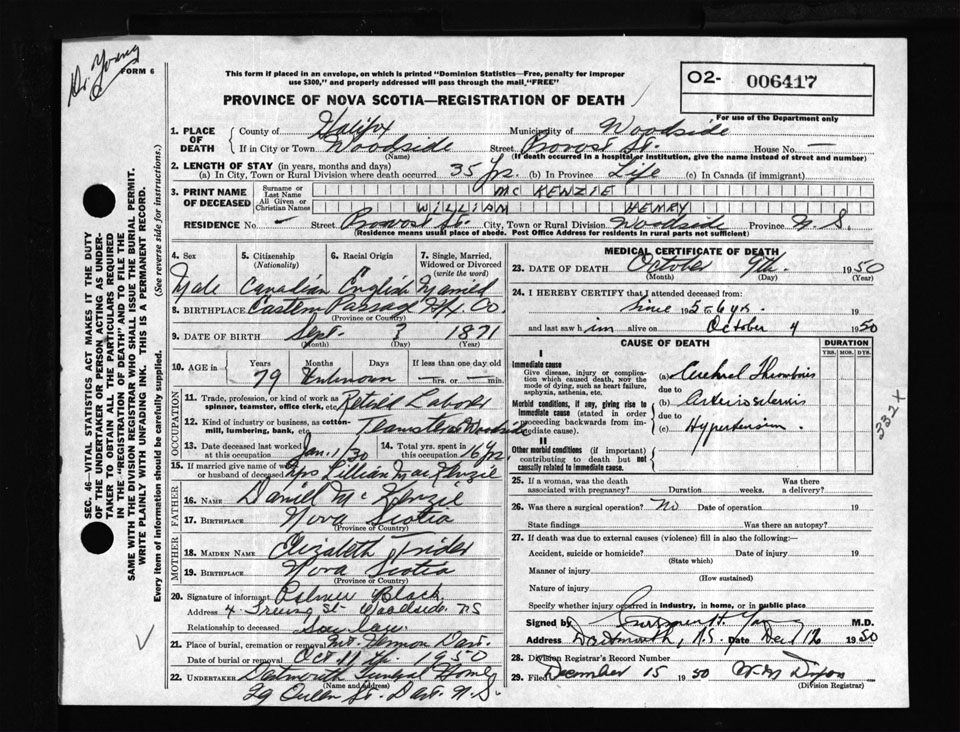 Dr. Young
FORM 6
This form if placed in an envelope, on which is printed "Dominion Statistics—Free, penalty for improper
use $300," and properly addressed will pass through the mail "FREE"
O2- 006417
For use of the Department only
PROVINCE OF NOVA SCOTIA—REGISTRATION OF DEATH
SEC. 46—VITAL STATISTICS ACT MAKES IT THE DUTY
OF THE UNDERTAKER OR PERSON ACTING AS UNDER-
TAKER TO OBTAIN ALL THE PARTICULARS REQUIRED
IN THE "REGISTRATION OF DEATH" AND TO FILE THE
SAME WITH THE DIVISION REGISTRAR WHO SHALL ISSUE THE BURIAL PERMIT.
WRITE PLAINLY WITH UNFADING INK. THIS IS A PERMANENT RECORD.
Every item of information should be carefully supplied. (See reverse side for instructions.)
1. PLACE OF DEATH County of Halifax Municipality of Woodside
If in City or Town Woodside Street Provost St. House No. —
(Name) (If death occurred in a hospital or institution, give the name instead of street and number)
2. LENGTH OF STAY (in years, months and days)
(a) In City, Town or Rural Division where death occurred 35 yrs (b) In Province Life (c) In Canada (if immigrant)
3. PRINT NAME OF DECEASED Surname or Last Name MC KENZIE
All Given or Christian Names WILLIAM HENRY
RESIDENCE No. — Street Provost St City, Town or Rural Division Woodside Province N S.
(Residence means usual place of abode. Post Office Address for residents in rural parts not sufficient)
4. Sex 5. Citizenship (Nationality) 6. Racial Origin 7. Single, Married, Widowed or Divorced (write the word)
Male Canadian English Married
8. BIRTHPLACE Eastern Passage Hfx Co.
(Province or Country)
9. DATE OF BIRTH Sept. 3 1871
(Month) (Day) (Year)
10. AGE in Years Months Days If less than one day old
79 Unknown hrs. or min.
OCCUPATION
11. Trade, profession, or kind of work as
spinner, teamster, office clerk, etc. Retired Laborer
12. Kind of industry or business, as cotton-
mill, lumbering, bank, etc. Teamster Woodside
13. Date deceased last worked at this occupation Jan. 1/30 14. Total yrs. spent in this occupation 16 yrs.
15. If married give name of wife or husband of deceased Mrs Lillian MacKenzie
FATHER
16. NAME Daniel McKenzie
17. BIRTHPLACE Nova Scotia
(Province or Country)
MOTHER
18. MAIDEN NAME Elizabeth Trider
19. BIRTHPLACE Nova Scotia
(Province or Country)
20. Signature of informant Palmer Black
Address 4 St Woodside NS
Relationship to deceased Son law
21. Place of burial, cremation or removal Mt. Hermon Dart.
Date of burial or removal Oct 11 th. 1950
22. UNDERTAKER Dartmouth Funeral Home
(Name and address)
29 Queen St. Dart. N.S.
MEDICAL CERTIFICATE OF DEATH
23. DATE OF DEATH October 9th. 1950
(Month) (Day)
24. I HEREBY CERTIFY that I attended deceased from:
Since 5-6 yrs.
and last saw him alive on October 4 1950
CAUSE OF DEATH DURATION
YRS. MOS. DYS.
I
Immediate cause
Give disease, injury or complication which caused death, not the mode of dying, such as heart failure, asphyxia, asthenia, etc.
(a) Cerebral Thrombosis
due to
Morbid conditions, if any, giving rise to immediate cause (stated in order proceeding backwards from immediate cause).
(b) Arteriosclerosis
due to
(c) Hypertension
II
Other morbid conditions (if important) contributing to death but not causally related to immediate cause.
332 X
25. If a woman, was the death associated with pregnancy? Duration weeks. Was there a delivery?
26. Was there a surgical operation? No Date of operation 19
State findings Was there an autopsy?
27. If death was due to external causes (violence) fill in also the following:—
Accident, suicide or homicide? Date of injury 19
(State which)
Manner of injury
(How sustained)
Nature of injury
Specify whether injury occurred in industry, in home, or in public place
Signed by Young M.D.
Address Dartmouth, N.S. Date Dec 12 1950
28. Division Registrar's Record Number
29. Filed December 15 1950 Dixon
(Division Registrar)